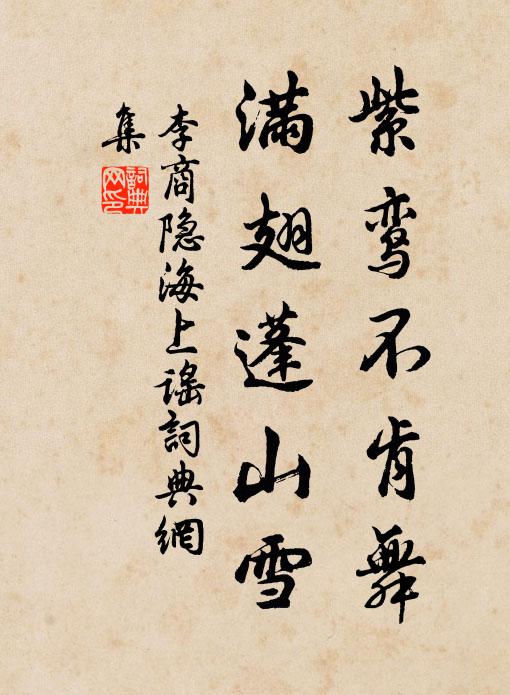 紫鸾不肯舞
满翅蓬山雪
李商隐海上谣詞典網
集
詞典网印